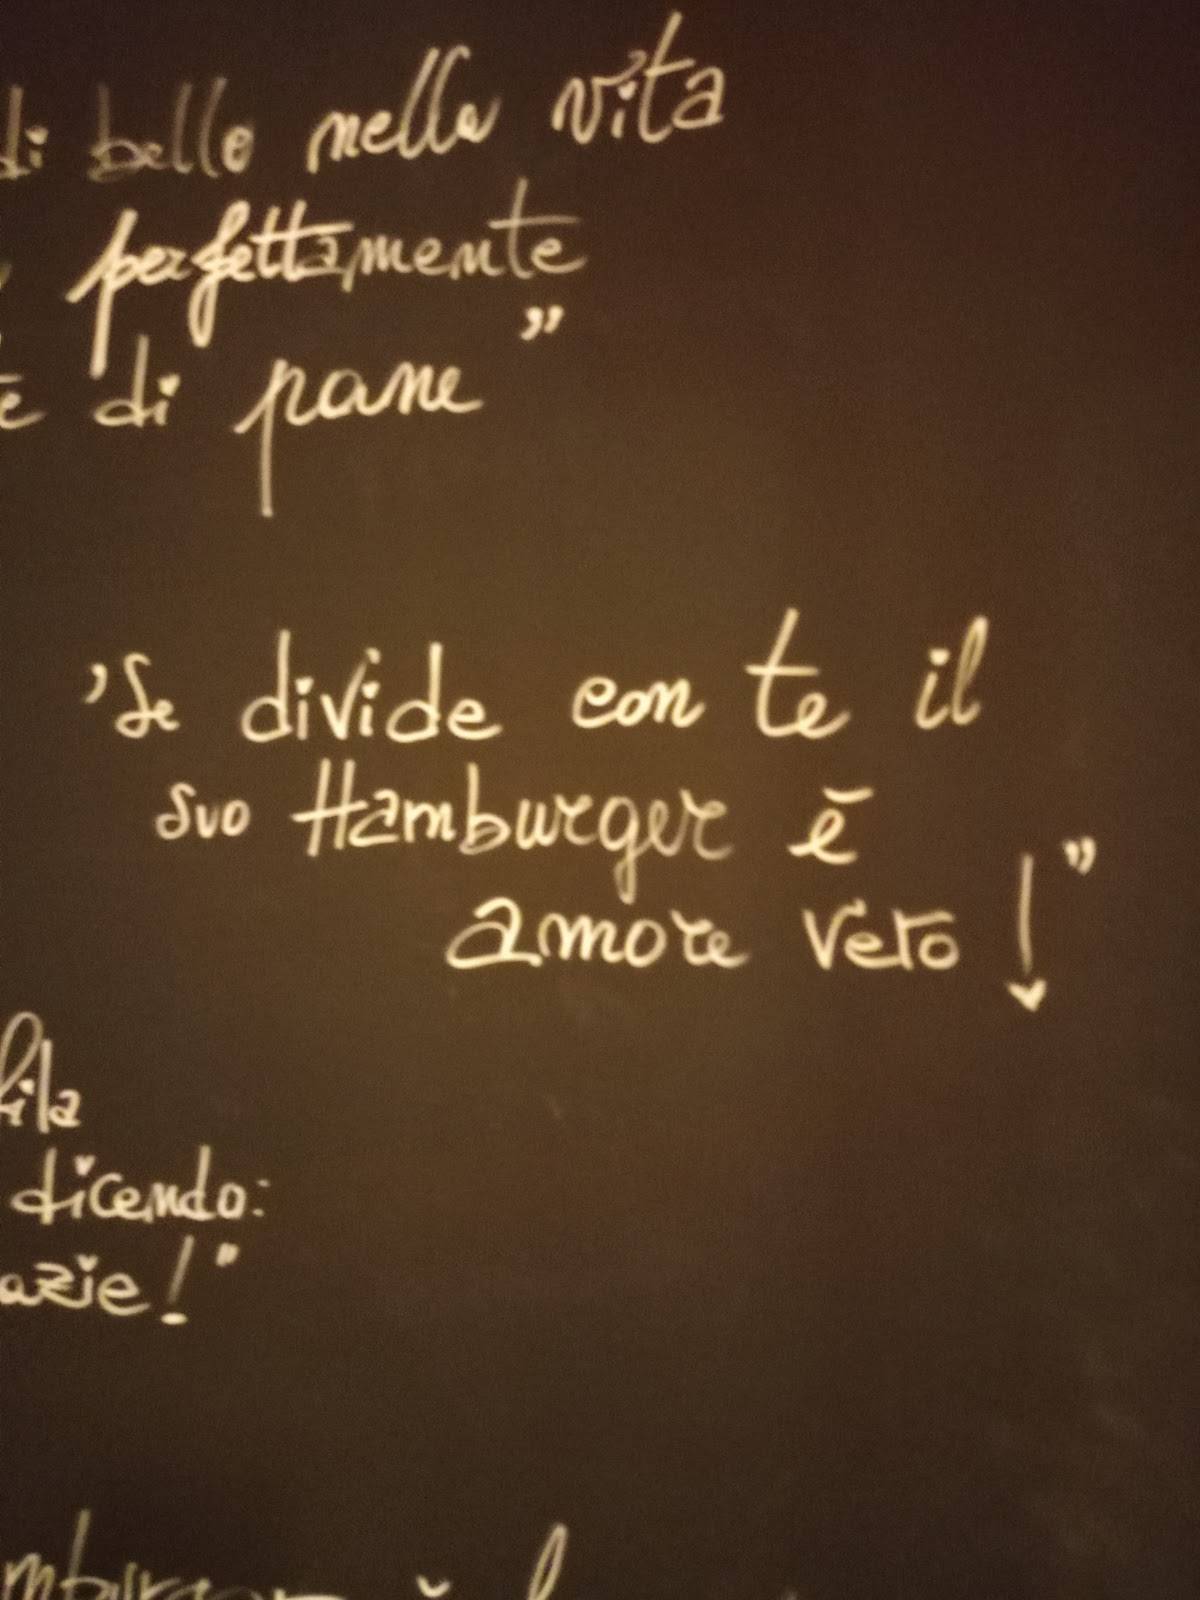 di bello nella vita
perfettamente
di pane”
’Se divide con te il
suo Hamburger è
amore vero!”
fila
dicendo:
azie!”